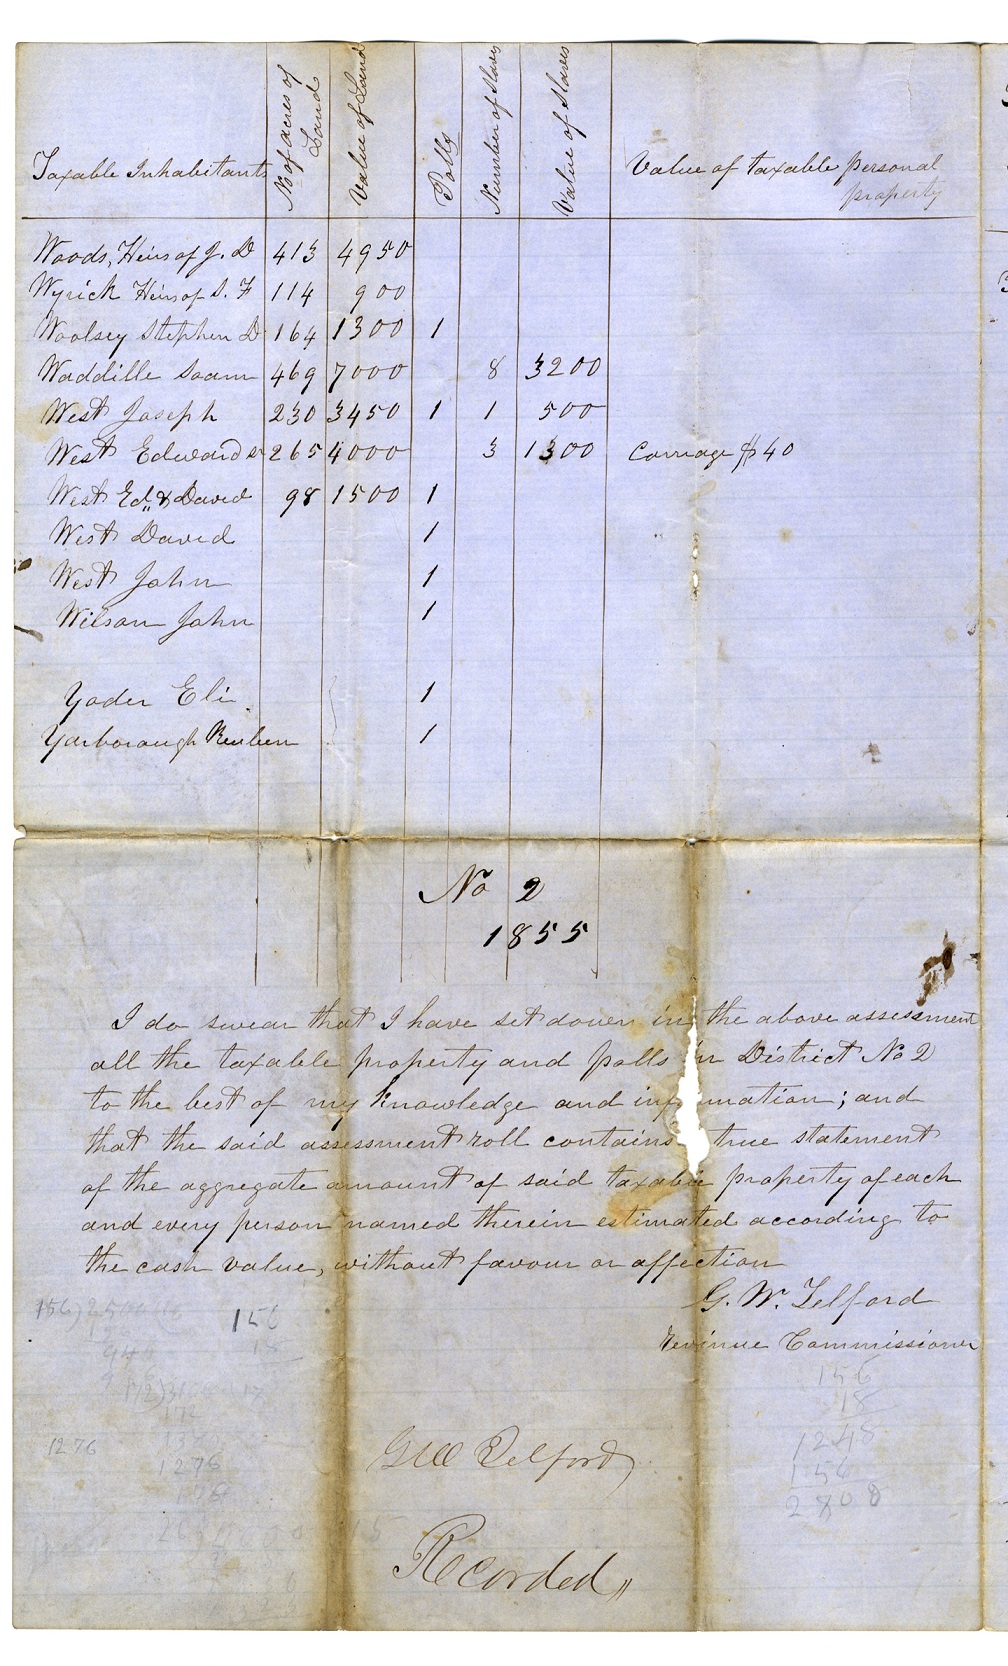 Taxable Inhabitants No of acres of Land Value of Land Polls Number of Slaves Value of Slaves Value of taxable personal property
Woods, Heirs of J. D 413 4950
Wyrick Heirs of S. F 114 900
Woolsey Stephen D 164 1300 1
Waddille Saam 469 7000 8 3200
West Joseph 230 3450 1 1 500
West Edward sr 265 4000 3 1300 Carriage $40
West Ed,, & David 98 1500 1
West David 1
West John 1
Wilson John 1
Yoder Eli 1
Yarborough Reuben 1
No 2
1855
I do swear that I have set down in the above assessment
all the taxable property and polls in District No 2
to the best of my knowledge and information; and
that the said assessment roll contains true statement
of the aggregate amount of said taxable property of each
and every person named therein estimated according to
the cash value, without favour or affection
G. W. Telford
Revinue Commissioner
156
18
1248
156
2808
156
1276
1276
GW Telford
Recorded,,